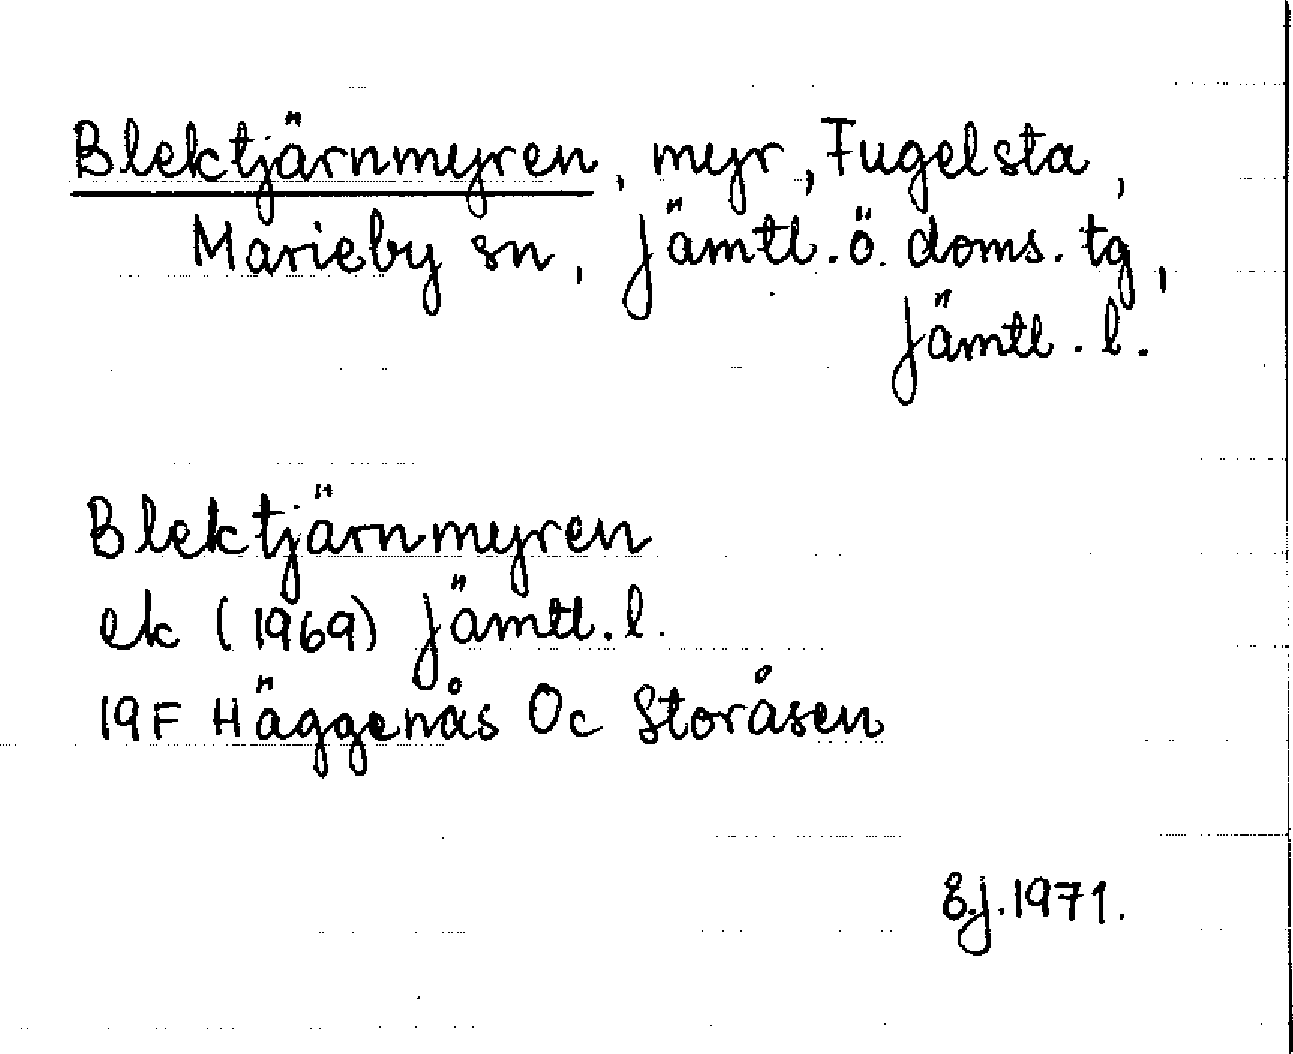 Blektjärnmyren, myr, Fugelsta,
Marieby sn, Jämtl. ö. doms. tg,
Jämtl. l.
Blektjärnmyren
ek (1969) Jämtl. l.
19F Häggenås Oc Storåsen
E.J. 1971.